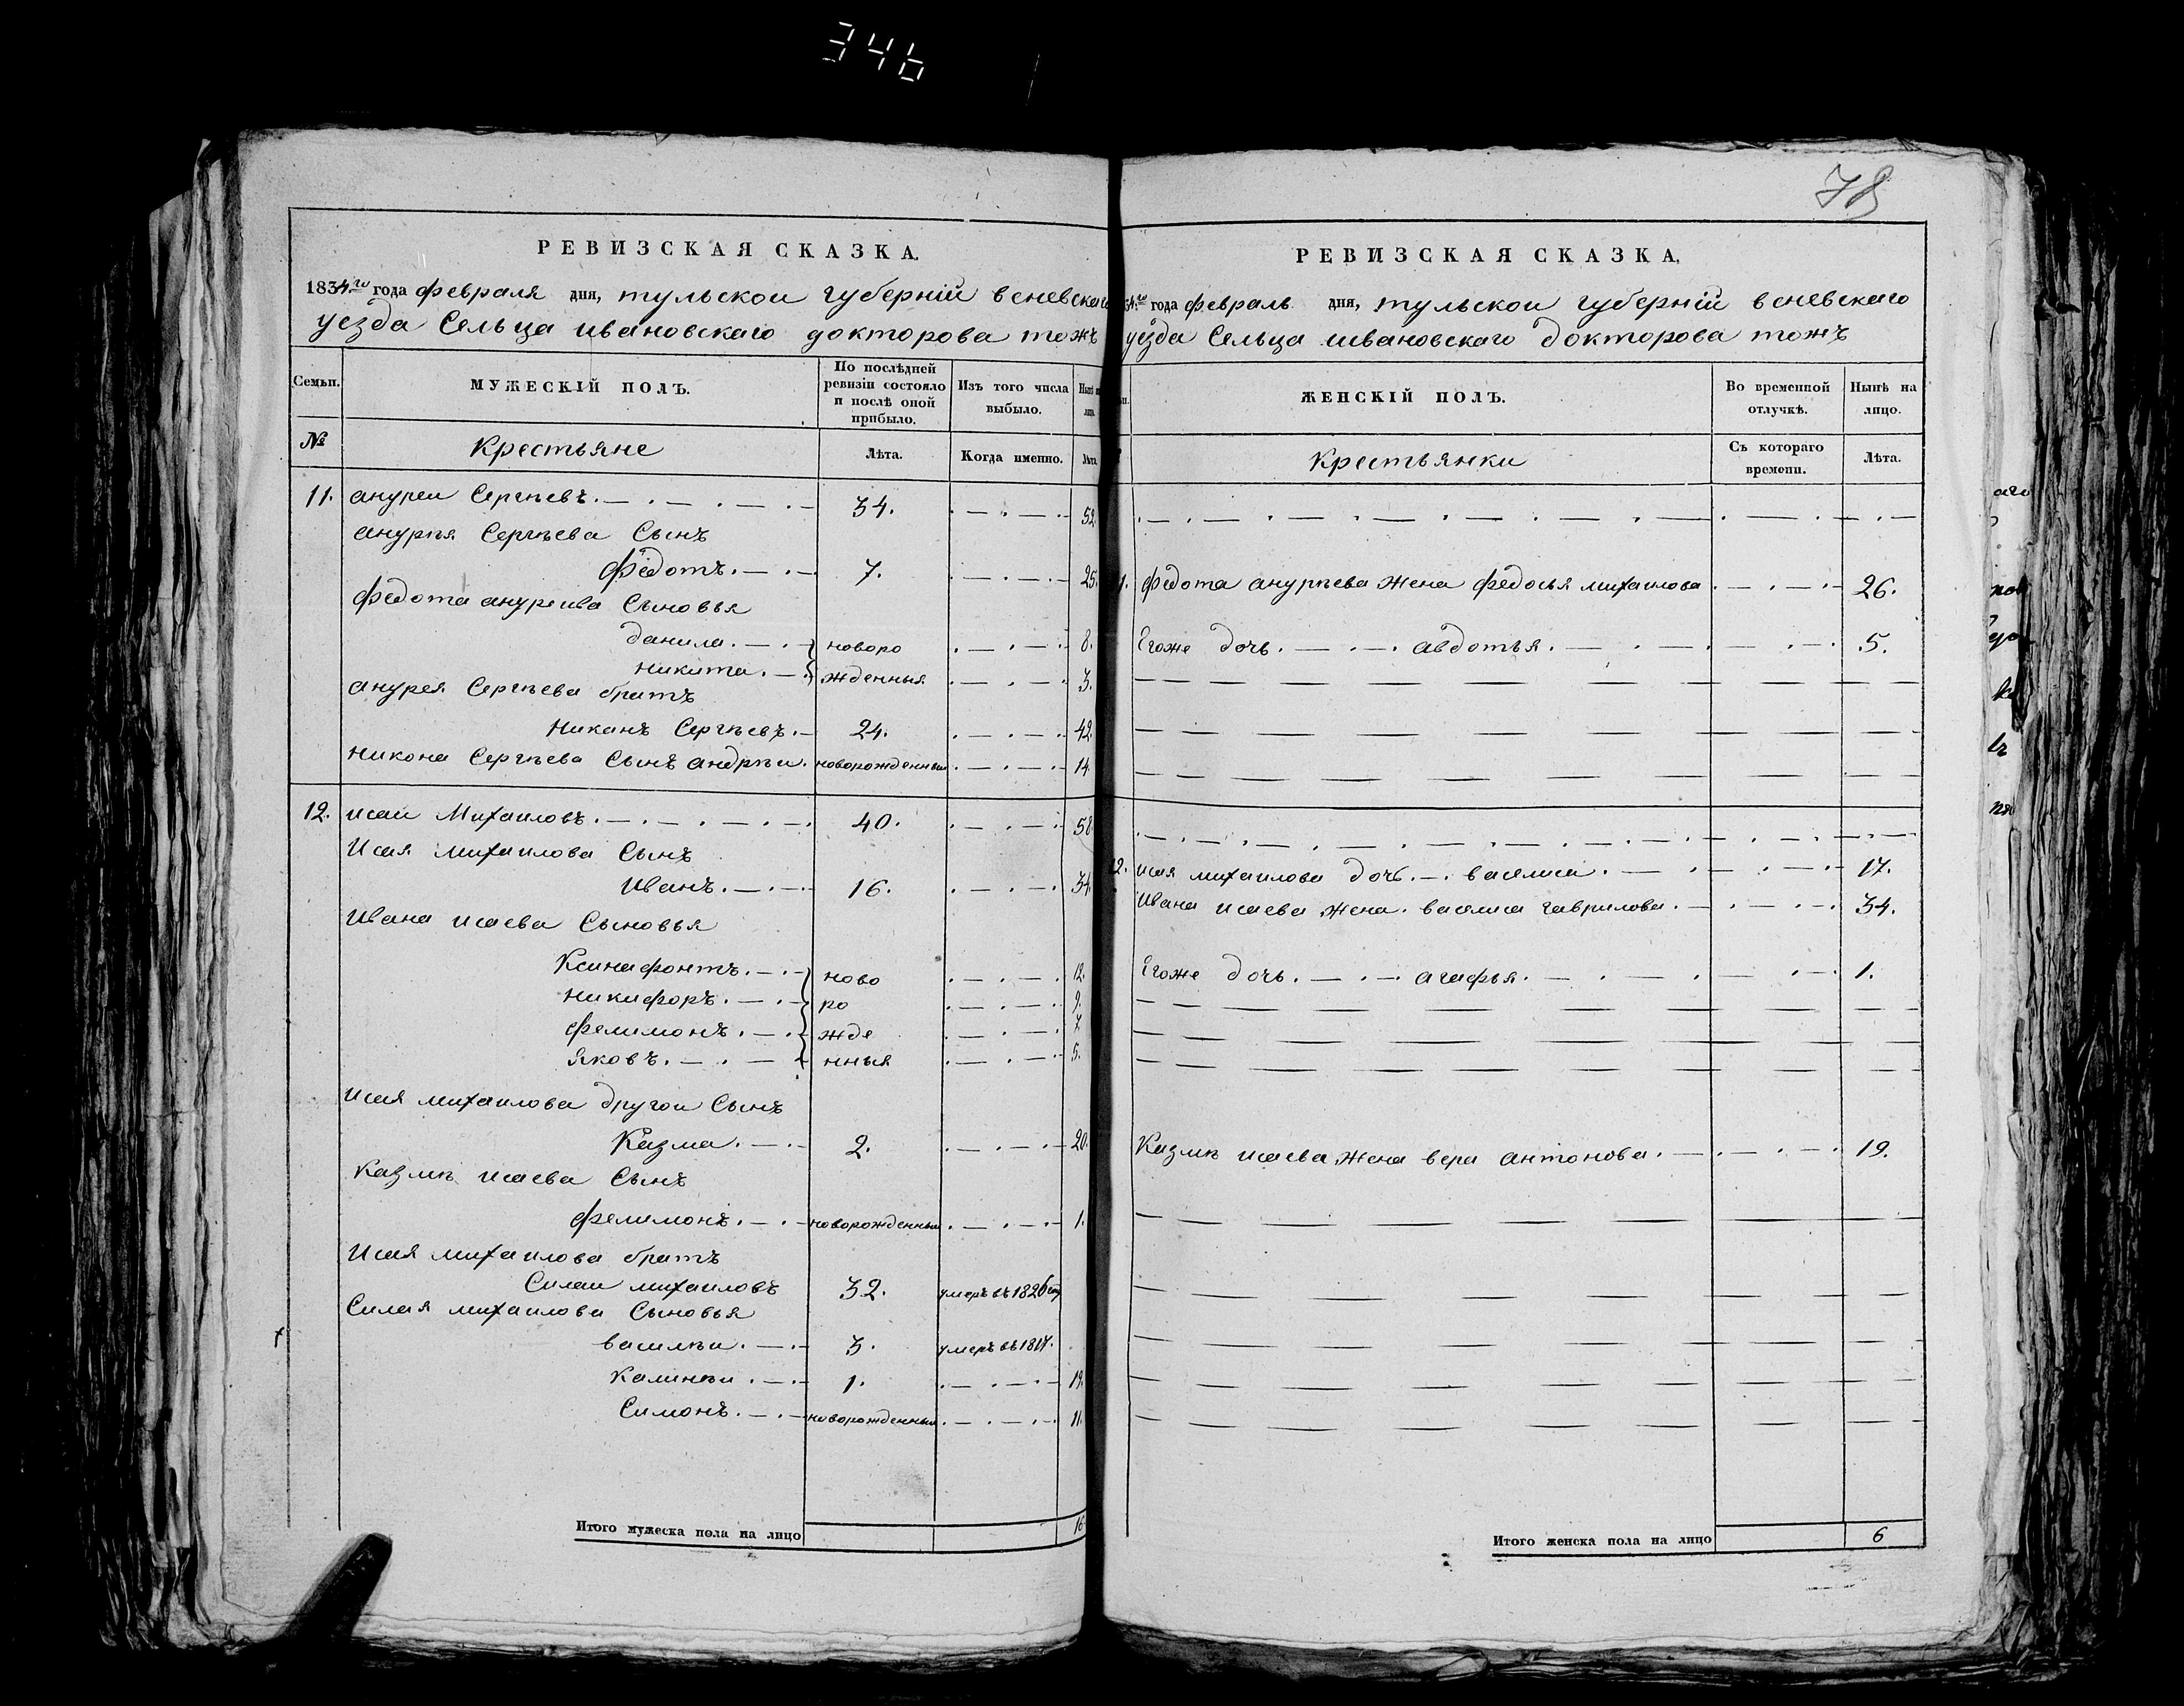 346
78
РЕВИЗСКАЯ СКАЗКА.
1834.го года февраля дня, тульскои губерніи веневскаго
уезда Сельца ивановскаго докторова тожъ
Семьи.
МУЖЕСКІЙ ПОЛЪ.
По послѣдней ревизіи состояло и послѣ оной прибыло.
Изъ того числа выбыло.
№
Крестьяне
Лѣта.
Когда именно.
Лѣта.
11. ануреи Сергѣевъ. 34. 52.
анурѣя Сергѣева Сынъ
Федотъ. 7. 25.
Федота ануреива Сыновья
данила. новоро 8.
Никита. жденныя 3.
анурея Сергѣева братъ
Никанъ Сергѣевъ. 24. 42.
Никона Сергѣева Сынъ андрѣи. новорожденныи 14.
12. исаи Михаиловъ. 40. 58.
Исая михаилова Сынъ
Иванъ. 16. 34.
Ивана исаева Сыновья
Ксинафонтъ. ново 12.
Никифоръ. ро 9.
Фелимонъ. жде 7.
Яковъ. нныя 5.
Исая михаилова другои Сынъ
Казма. 2. 20.
Казмѣ исаева Сынъ
Фелимонъ. новорожденныи. 1.
Исая михаилова братъ
Силаи михаиловъ 32. умеръ въ 1826 году
Силая михаилова Сыновья
василѣи. 3. умеръ въ 1817.
Калинѣи. 1. 19.
Симонъ. новорожденныи. 11.
Итого мужеска пола на лицо 16
РЕВИЗСКАЯ СКАЗКА,
34.го года февраль дня, тульскои губерніи веневскаго
уезда Сельца ивановскаго докторова тожъ
ЖЕНСКІЙ ПОЛЪ.
Во временной отлучкѣ.
Нынѣ на лицо.
Крестьянки
Съ котораго времени.
Лѣта.
Федота анурѣева жена федосья михаилова 26.
Егоже дочь. авдотья. 5.
12. исая михаилова дочь. василиса. 17.
Ивана исаева жена. василиса гаврилова. 34.
Егоже дочь. агафья. 1.
Казмѣ исаева жена вера антонова. 19.
Итого женска пола на лицо 6